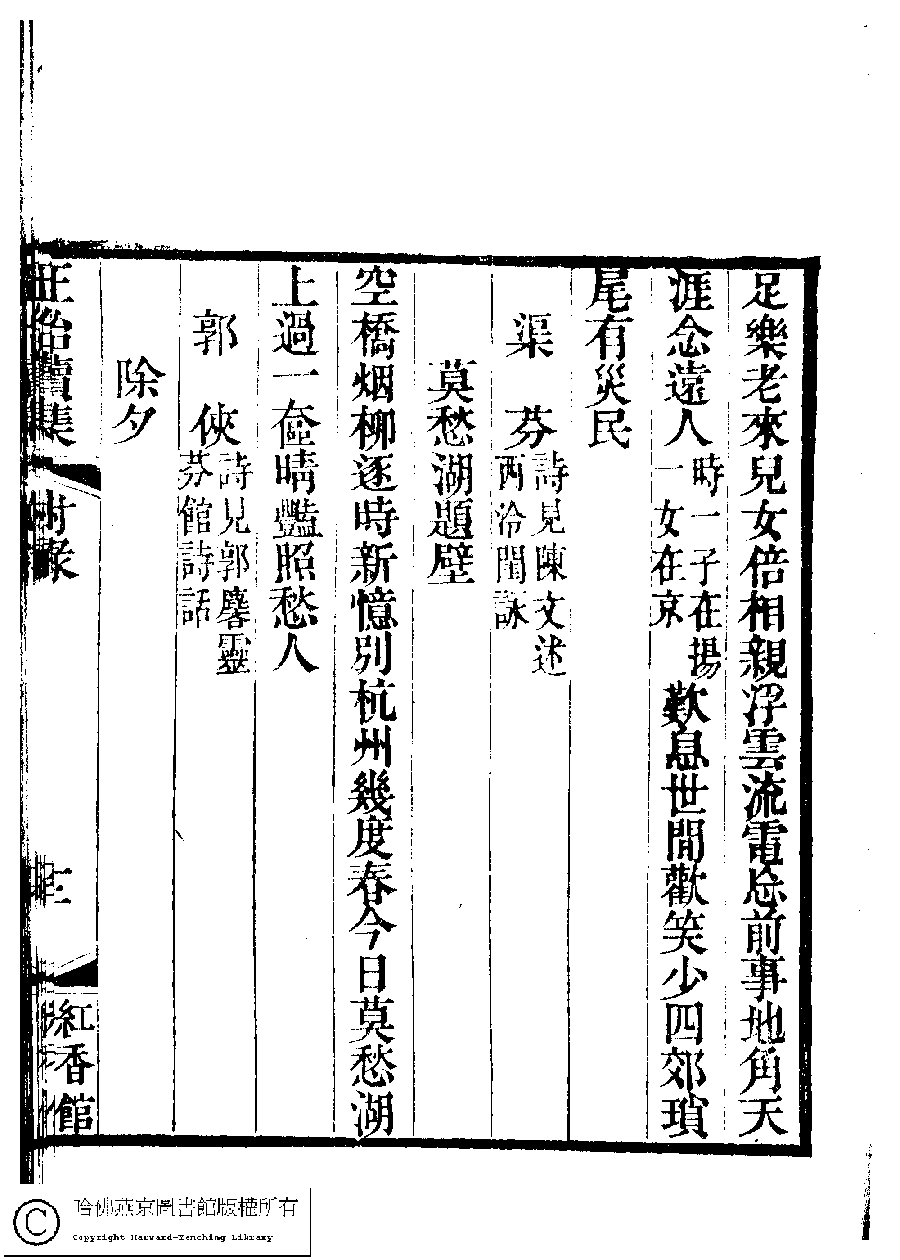 足樂老來兒女倍相親浮雲流電念前事地角天
涯念遠人時一子在揚一女在京歎息世閒歡笑少四郊瑣
尾有災民
渠芬詩見陳文述西泠閨詠
莫愁湖題壁
空橋烟柳逐時新憶別杭州幾度春今日莫愁湖
上過一奩晴豔照愁人
郭俠詩見郭麐靈芬館詩話
除夕
正始續集 附錄 紅香館
哈佛燕京圖書館版權所有
Copyright Harvard-Yenching Library